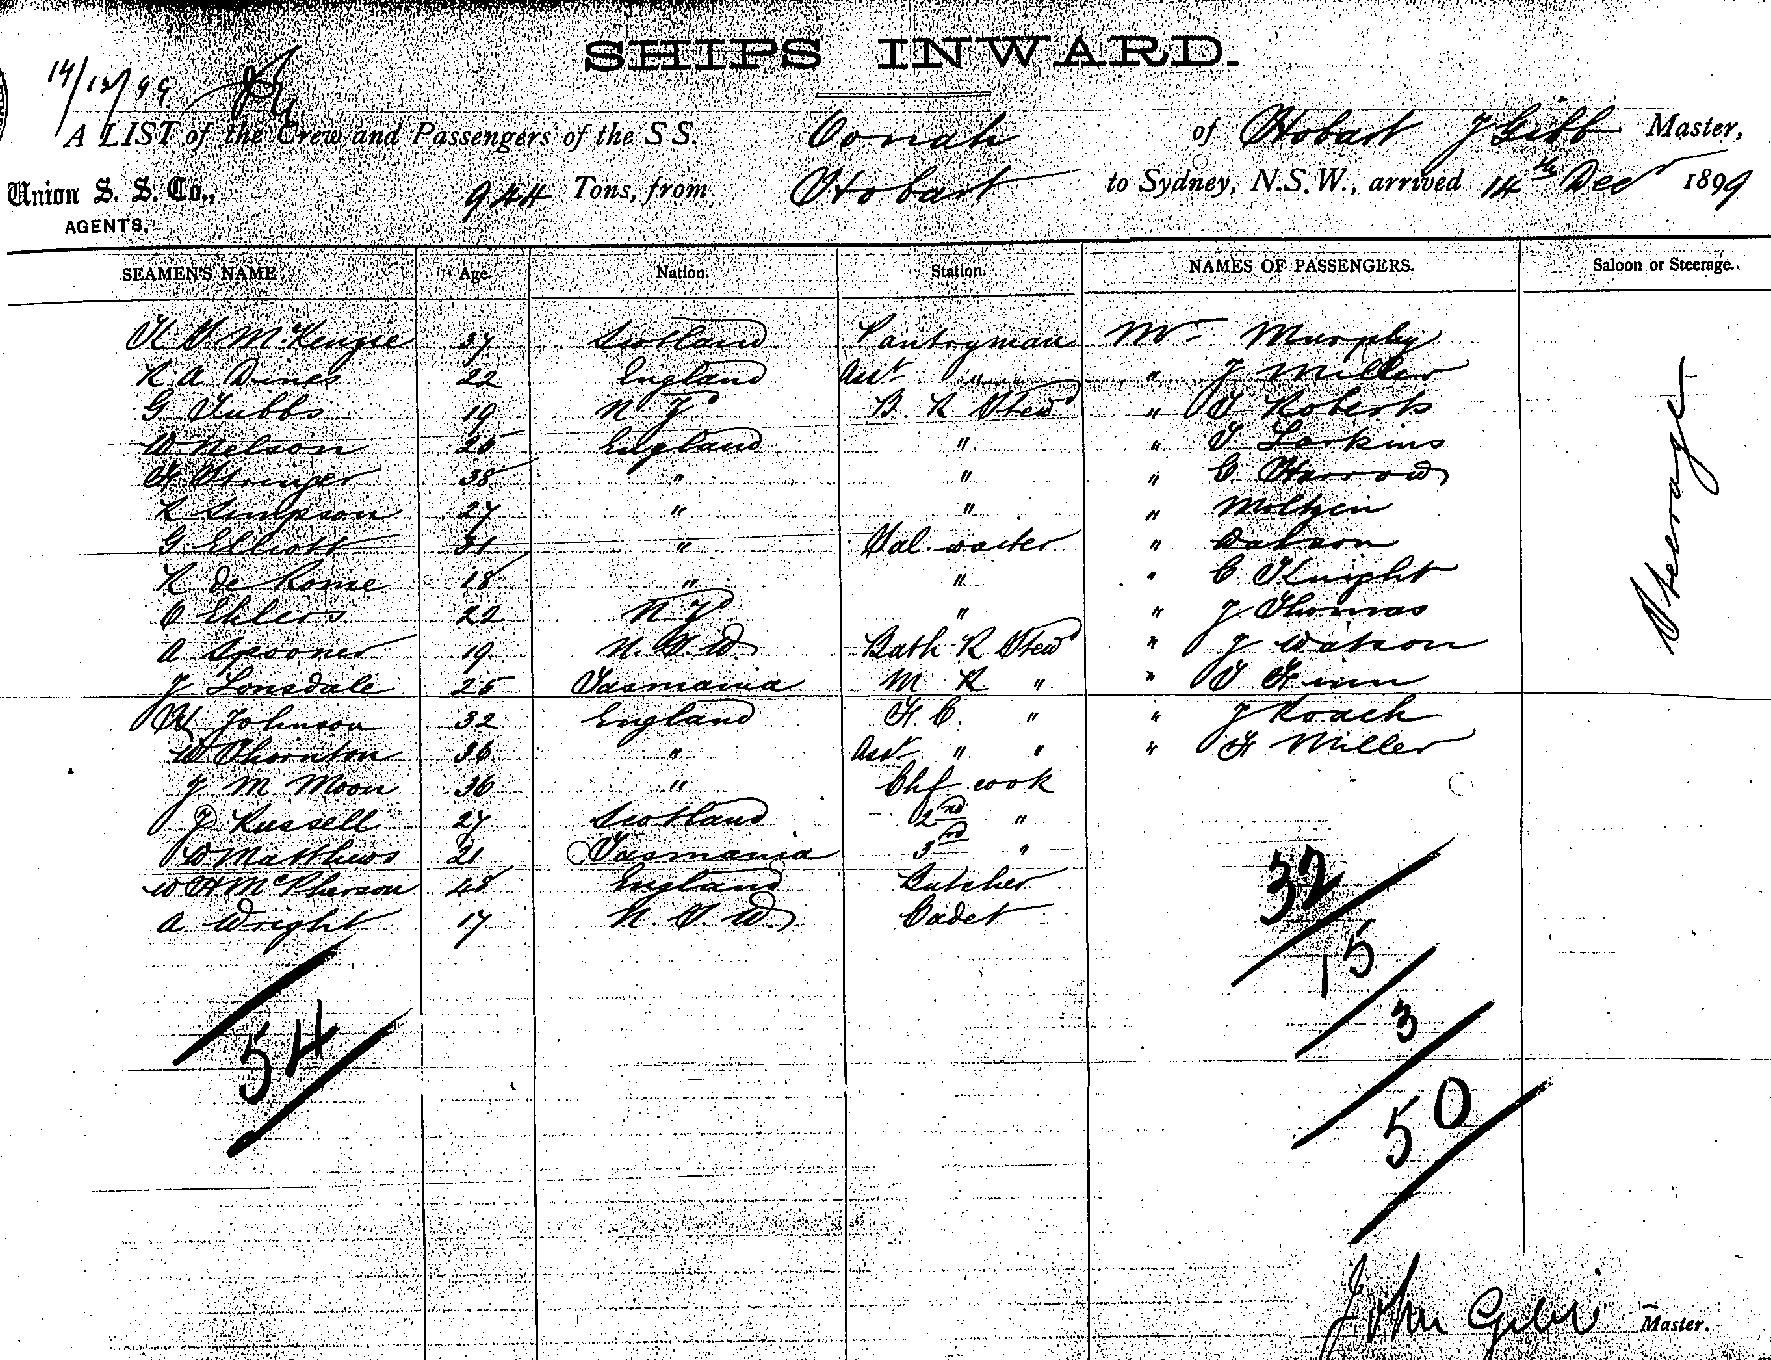 SHIPS INWARD.
14/12/99
A LIST of the Crew and Passengers of the S S. Oonah of Hobart J Gibb Master,
Union S. S. Co., AGENTS. 944 Tons, from Hobart to Sydney, N.S.W., arrived 14th Decr 1899
SEAMEN'S NAME. Age. Nation. Station. NAMES OF PASSENGERS. Saloon or Steerage.
McKenzie 37 Scotland Pantryman Mr Murphy
R A Dines 22 England Asst " " J Miller
G Tubbs 19 N Z B R Stewd " T Roberts
W. Nelson 25 England " " T Larkins
H Stringer 38 " " " C Harrow
R Simpson 27 " " "
G Elliott 31 " Sal. waiter "
R de Rome 18 " " " C
O Ehlers 22 N Z " " J Thomas
A Spooner 19 N. S. W. Bath R Stewd " J Watson
J Lonsdale 25 Tasmania M R " " T
H. Johnson 32 England F. C. " " J Roach
W Thornton 36 " Asst " " " H Miller
J M Moon 36 " Chf cook
J Russell 27 Scotland 2nd "
W Matthews 21 Tasmania 3rd "
W H McPherson 48 England Butcher
A Wright 17 N. S. W. Cadet
Steerage
54
32
15
3
50
John Gibb Master.